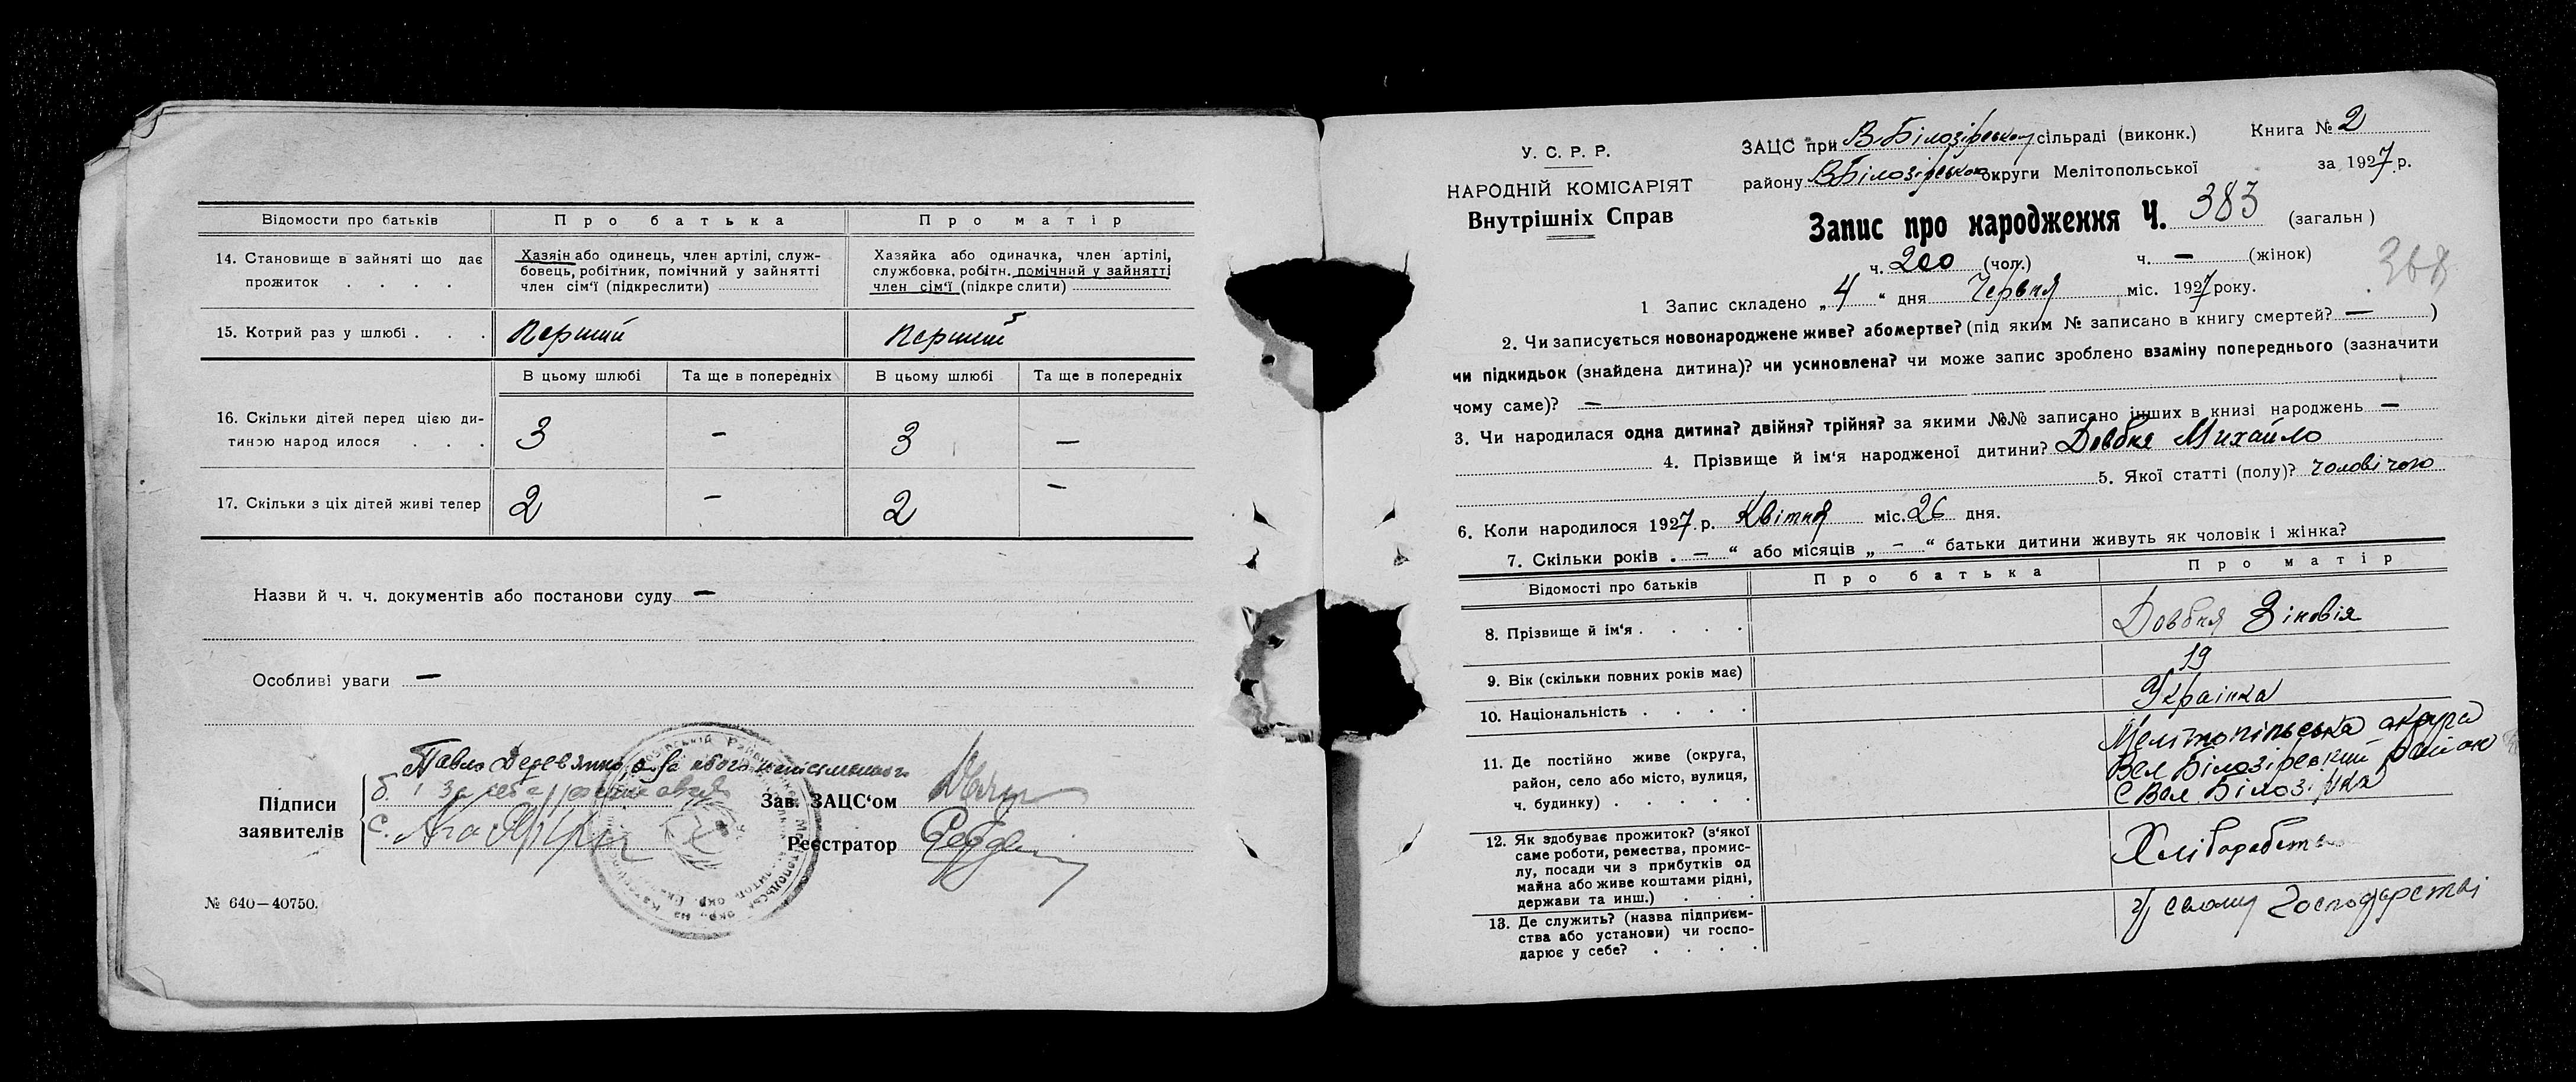 Відомости про батьків
Про батька
Про матір
14. Становище в зайняті що дає прожиток . . . .
Хазяін або одинець, член артілі, служ-
бовець, робітник, помічний у зайнятті
член сім'ї (підкреслити)
Хазяйка або одиначка, член артілі,
службовка, робітн. помічний у зайнятті
член сім'ї (підкреслити)
15. Котрий раз у шлюбі . . .
Перший
Перший
В цьому шлюбі
Та ще в попередніх
В цьому шлюбі
Та ще в попередніх
16. Скільки дітей перед цією ди-
тиною народилося . . .
3
—
3
—
17. Скільки з ціх дітей живі тепер
2
—
2
—
Назви й ч. ч. документів або постанови суду —
Особливі уваги —
Підписи
заявителів
Павло Дерев'янко, а за його
Зав. ЗАЦС'ом
Реєстратор
№ 640—40750.
У. С. Р. Р.
НАРОДНІЙ КОМІСАРІЯТ
Внутрішніх Справ
ЗАЦС при В Білозірськом сільраді (виконк.)
Книга № 2
району В Білозірського округи Мелітопольської
за 1927 р.
Запис про народження Ч. 383 (загальн)
368
ч. 200 (чол.)
ч. — (жінок)
1 Запис складено „4“ дня Червня міс. 1927 року.
2. Чи записується новонароджене живе? або мертве? (під яким № записано в книгу смертей? — )
чи підкидьок (знайдена дитина)? чи усиновлена? чи може запис зроблено взаміну попереднього (зазначити
чому саме)? —
3. Чи народилася одна дитина? двійня? трійня? за якими №№ записано інших в книзі народжень —
4. Прізвище й ім'я народженої дитини? Довбня Михайло
5. Якої статті (полу)? чоловічого
6. Коли народилося 1927 р. Квітня міс. 26 дня.
7. Скільки років . — “ або місяців „ — “ батьки дитини живуть як чоловік і жінка?
Відомості про батьків
Про батька
Про матір
8. Прізвище й ім'я . . . .
Довбня Зіновія
9. Вік (скільки повних років має)
19
10. Національність . . . .
Українка
11. Де постійно живе (округа,
район, село або місто, вулиця,
ч. будинку) . . . . .
Мелітопільська округа
Вел Білозірський район
с Вел Білозірка
12. Як здобуває прожиток? (з'якої
саме роботи, ремества, промис-
лу, посади чи з прибутків од
майна або живе коштами рідні,
держави та инш.) . . .
Хліборобство
13. Де служить? (назва підприєм-
ства або установи) чи госпо-
дарює у себе? . . . .
У свому господарстві